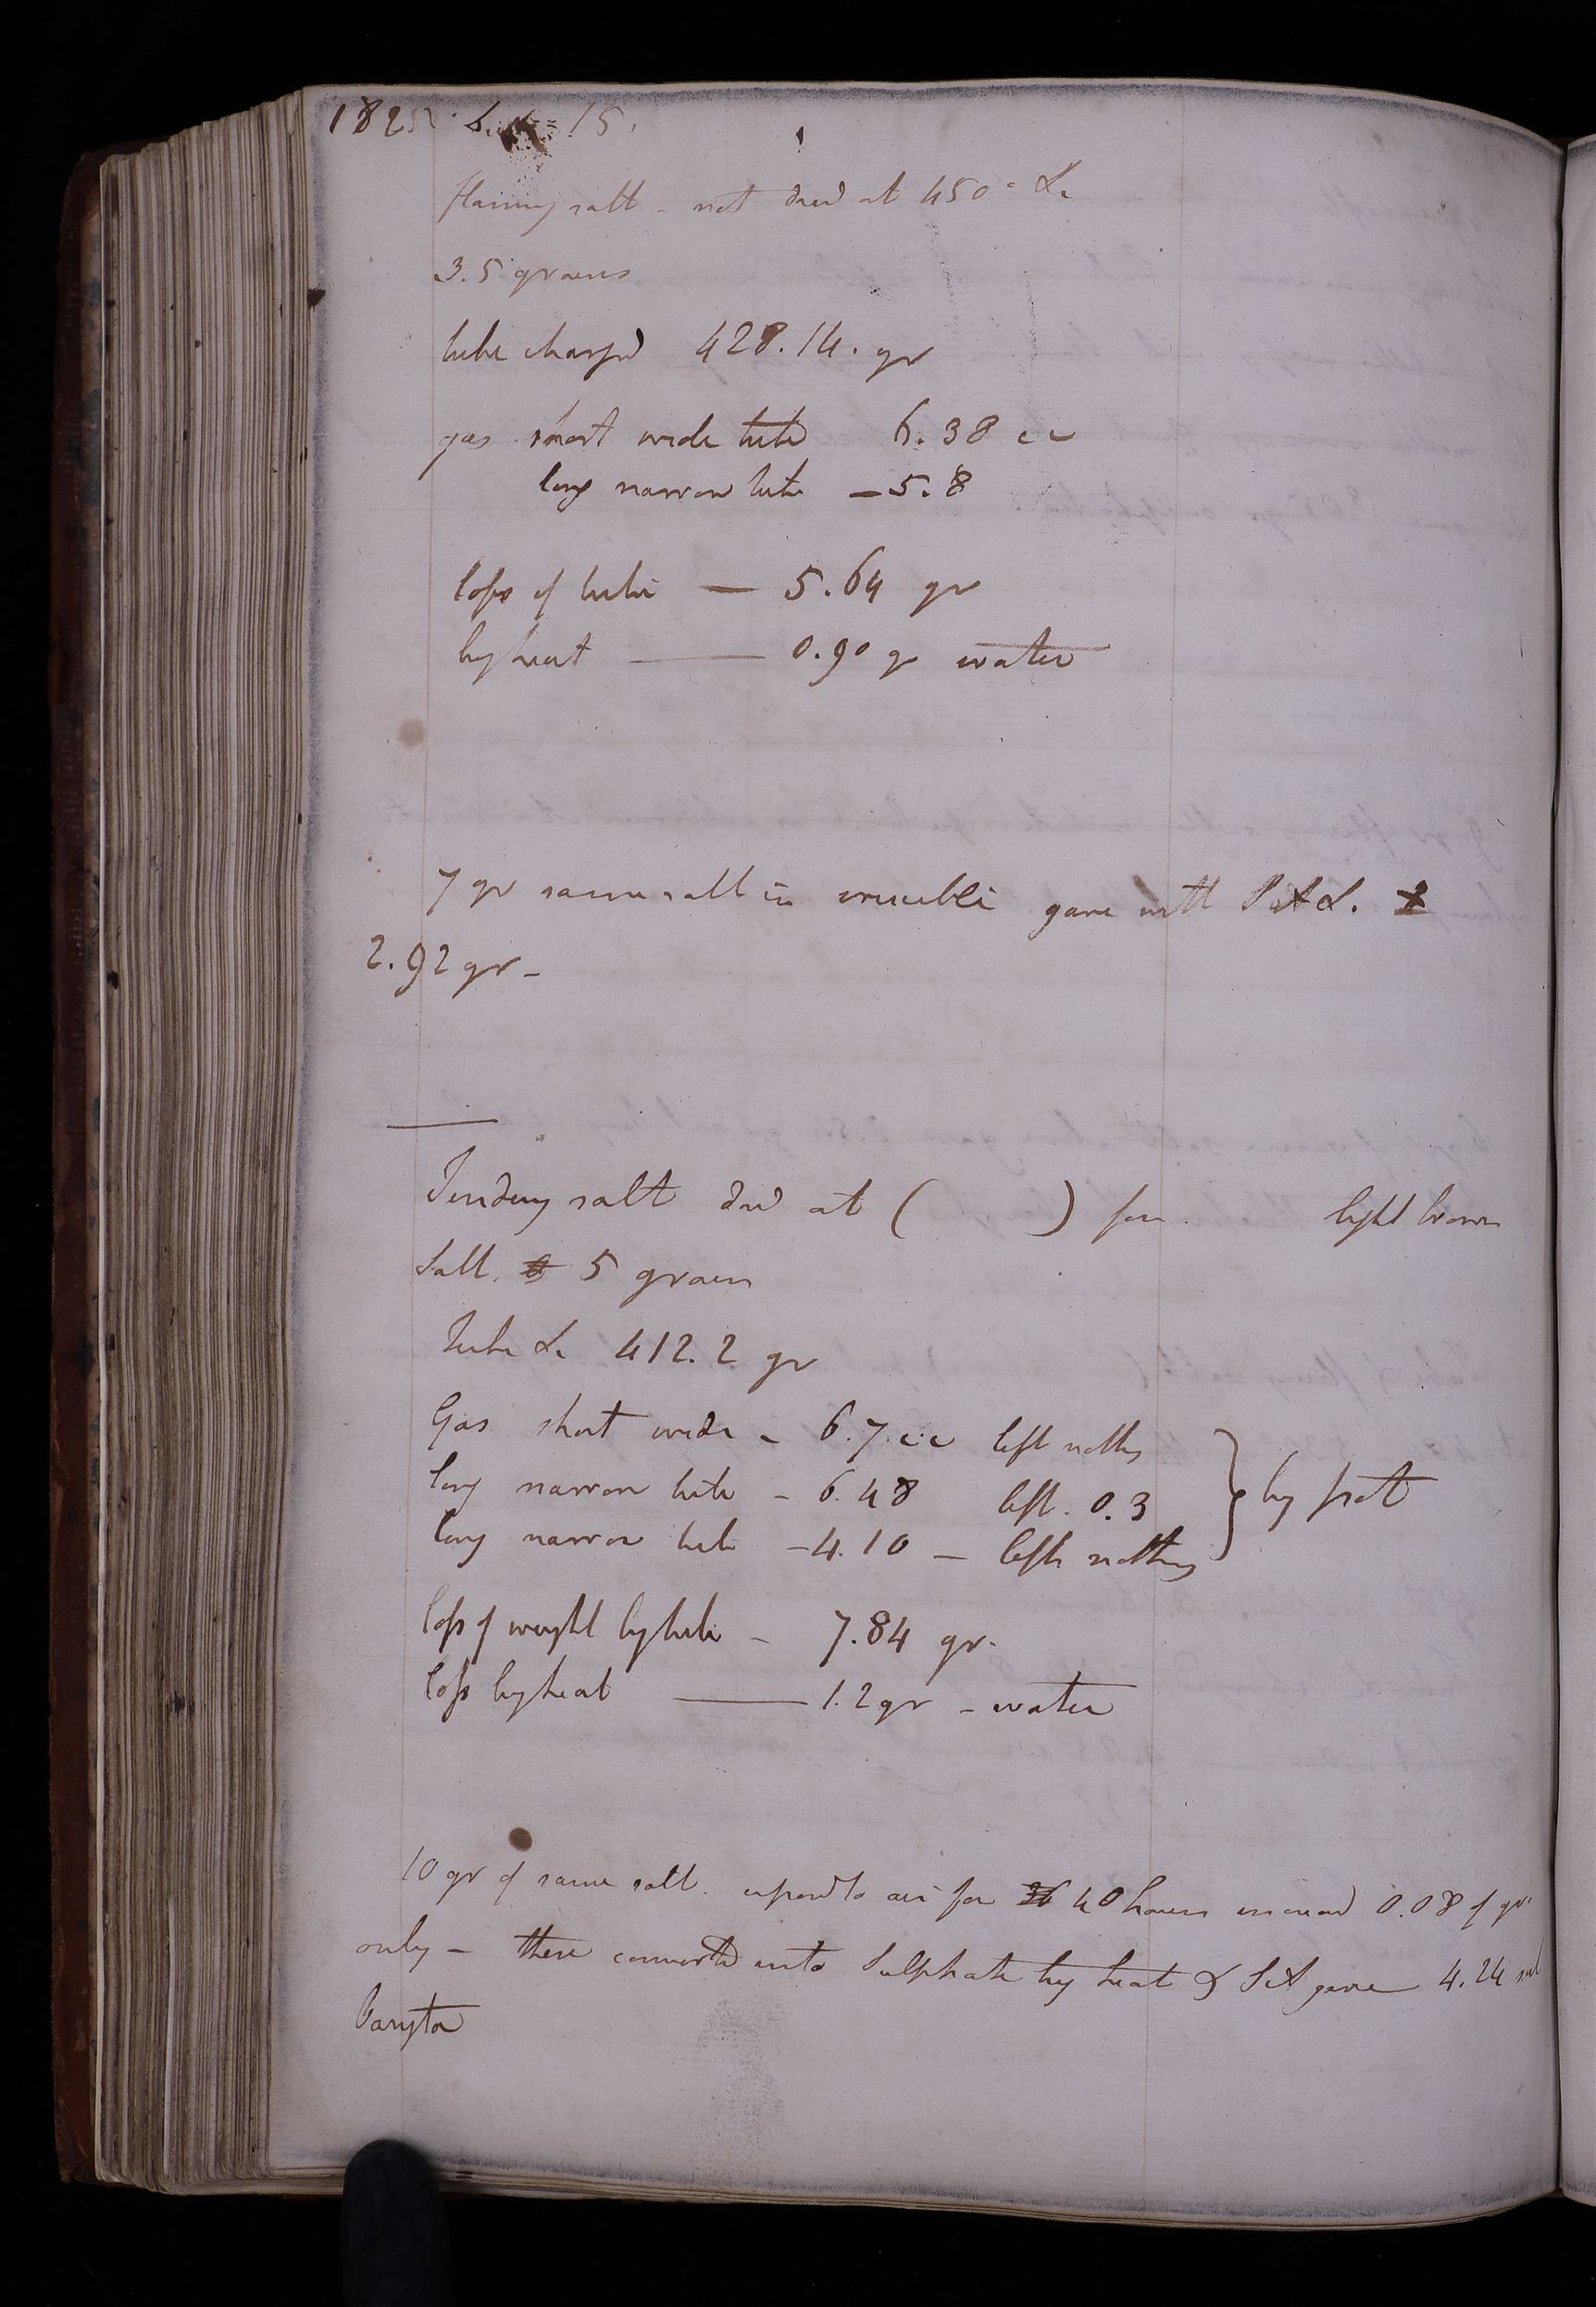 1825. Sept 15.
Flaming salt - not dried at 450° &c
3.5 grains
tube charged 428.14. gr
gas short wide tube 6.38 cc
long narrow tube - 5.8
loss of tube — 5.64 gr
by heat — 0.90 gr water
7 gr same salt in crucible gave with S A &.
2.92 gr -
Tindery salt dried at ( ) for light brown
Salt. 5 grains
Tube &c 412.2 gr
Gas short wide - 6.7 cc left nothing
long narrow tube - 6.48 left 0.3 } by pot
long narrow tube - 4.10 - left nothing
loss of weight by tube - 7.84 gr.
loss by heat — 1.2 gr - water
10 gr of same salt exposed to air for 36 40 hours increased 0.08 of gr
only - these converted into Sulphate by heat & S A gave 4.24 sul
Baryta